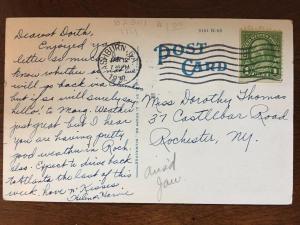 Dearest Doith,
Enjoyed your
letter so much
know whether or
will go back via
but if so will surely say
hello" to Marg. Weather
just great but I hear
you are having pretty
good weather in Roch.
also. Expect to drive back
to Atlanta the last of this
week. Love n' Kisses,
ASHBURN, GA.
1 PM
POST
CARD
Miss Dorothy Thomas
37 Castlebar Road
Rochester, NY.